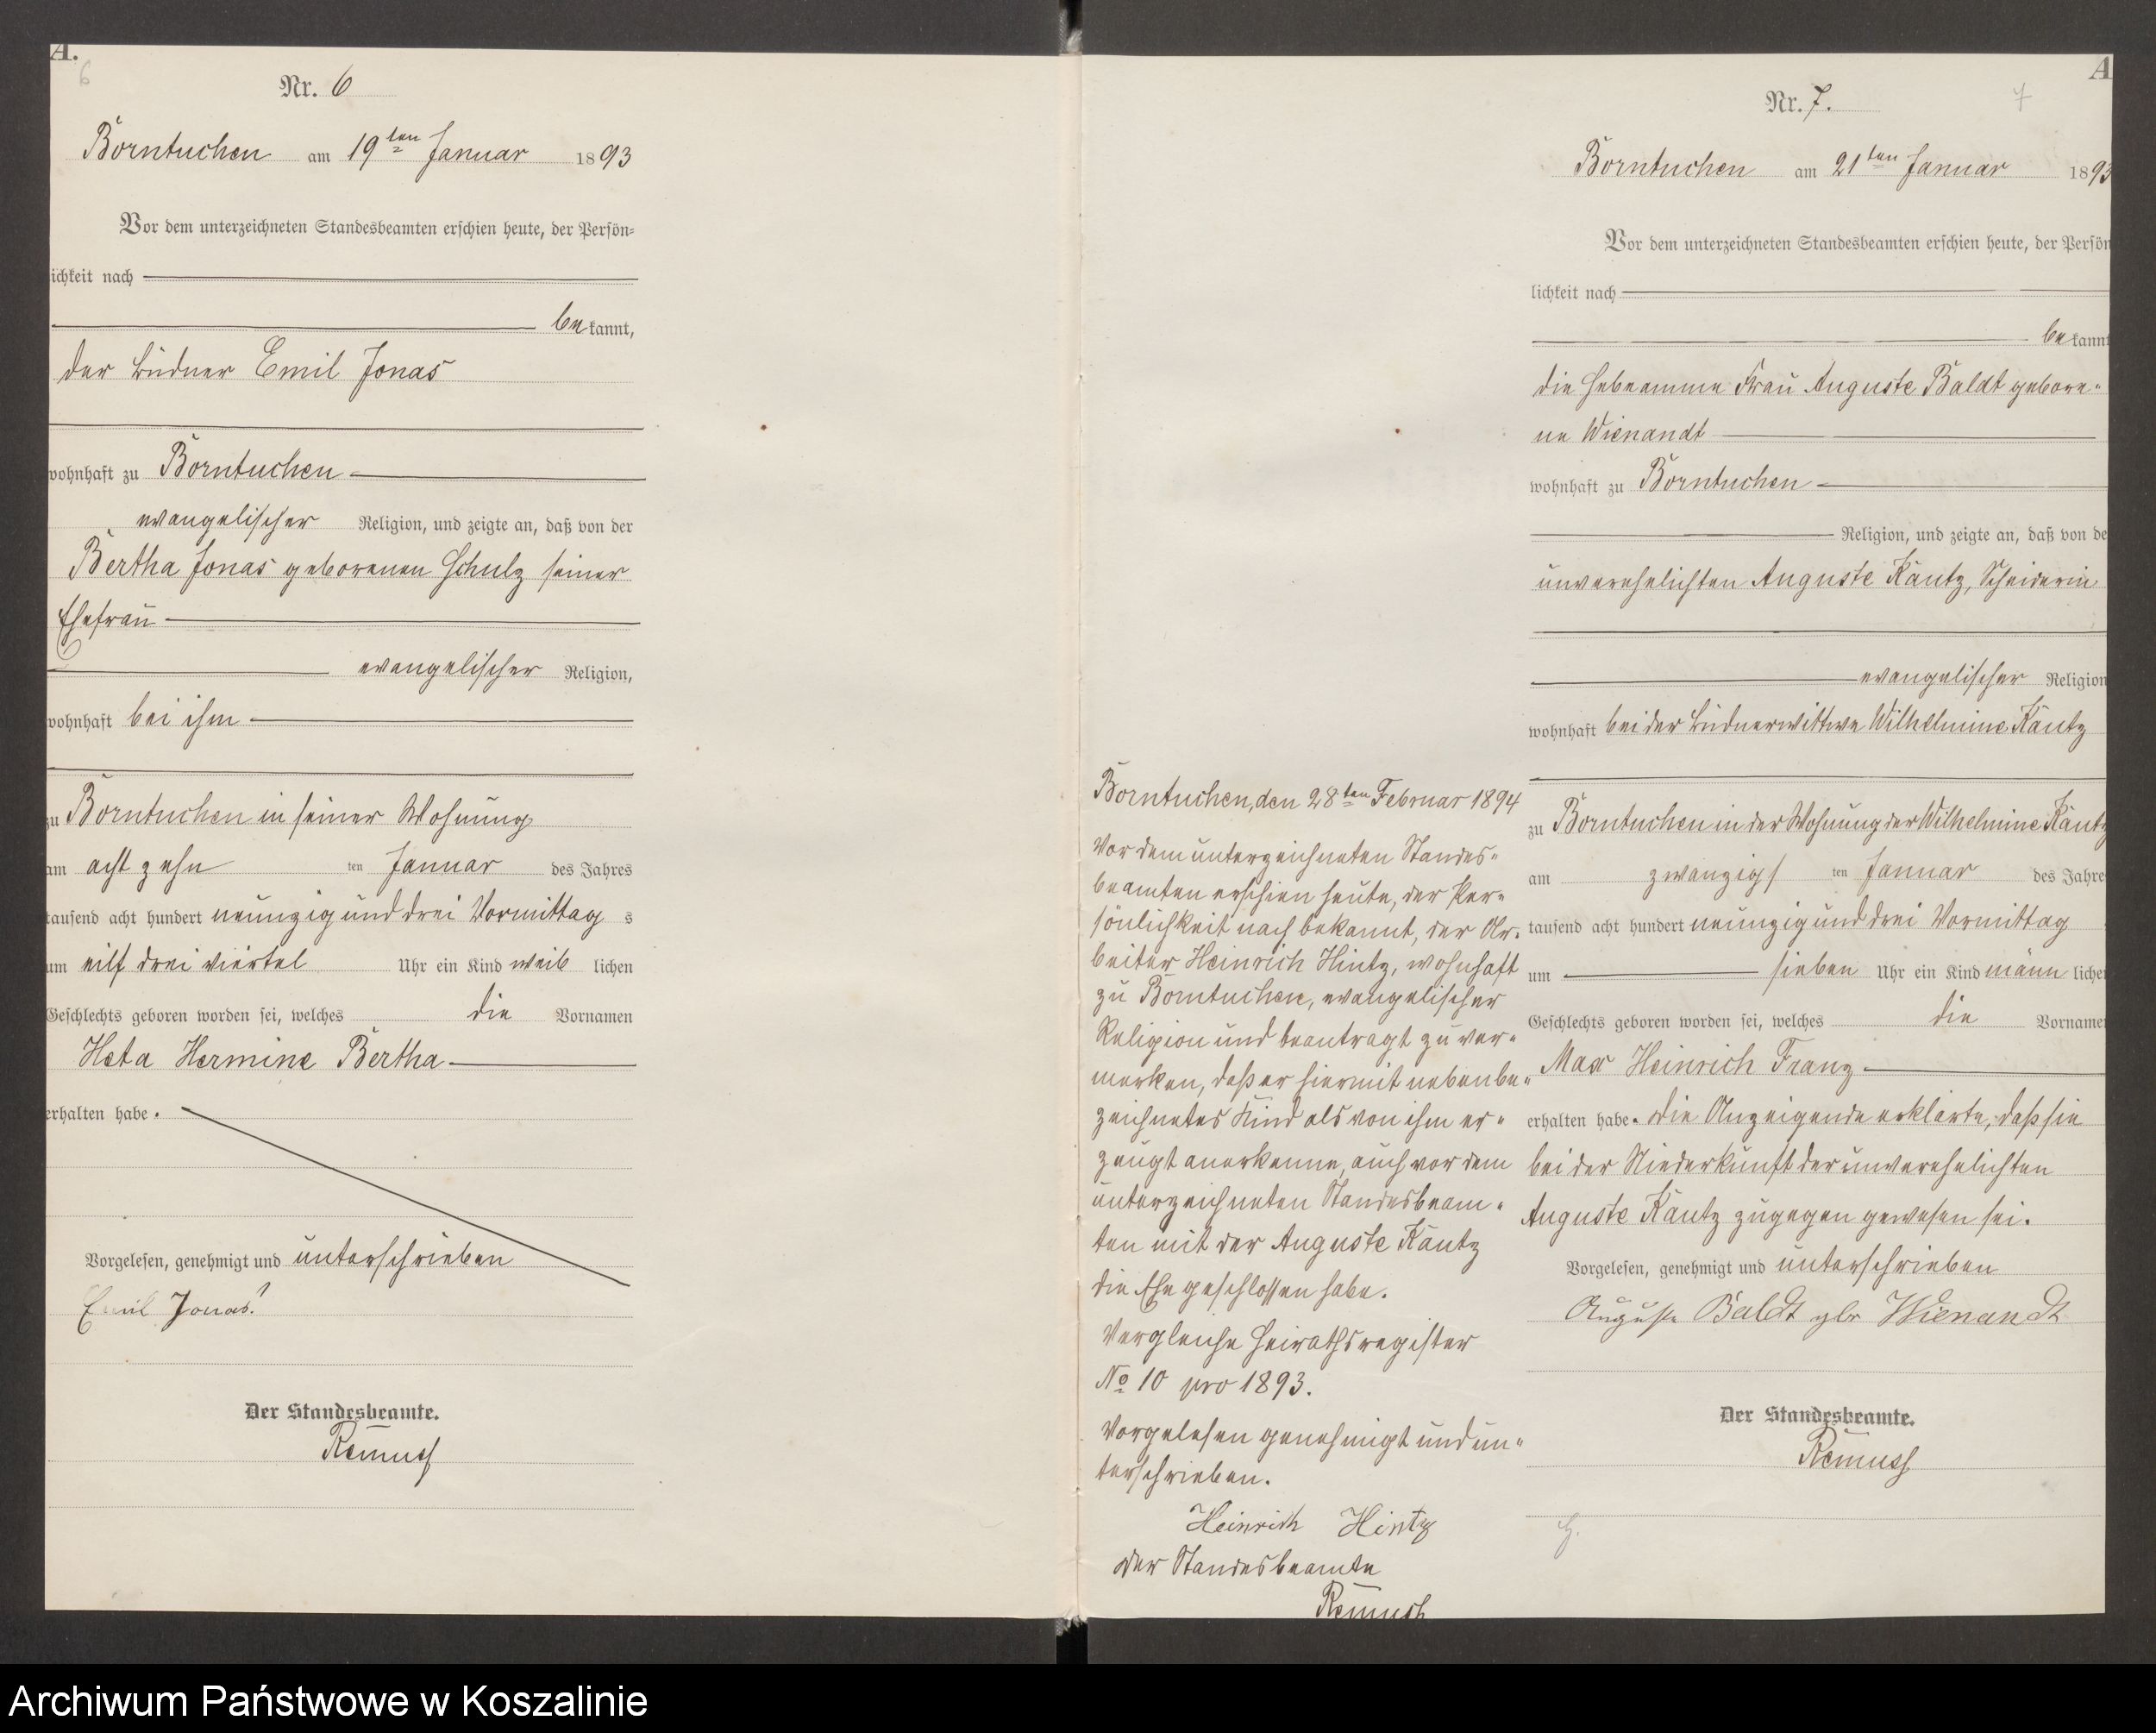 A.
6
Nr. 6
Borntuchen am 19ten Januar 1893
Vor dem unterzeichneten Standesbeamten erschien heute, der Persön-
lichkeit nach
bekannt,
der Büdner Emil Jonas
wohnhaft zu Borntuchen
evangelischer Religion, und zeigte an, daß von der
Bertha Jonas geborenen Schulz seiner
Ehefrau
evangelischer Religion,
wohnhaft bei ihm
zu Borntuchen in seiner Wohnung
am acht zehn ten Januar des Jahres
tausend acht hundert neunzig und drei Vormittag s
um eilf drei viertel Uhr ein Kind weib lichen
Geschlechts geboren worden sei, welches die Vornamen
Heta Hermine Bertha
erhalten habe.
Vorgelesen, genehmigt und unterschrieben
Emil Jonas.
Der Standesbeamte.
Remus
A
7
Nr. 7.
Borntuchen am 21ten Januar 1893
Vor dem unterzeichneten Standesbeamten erschien heute, der Persön
lichkeit nach
bekannt
die Hebeamme Frau Auguste Baldt gebore-
ne Wienandt
wohnhaft zu Borntuchen
Religion, und zeigte an, daß von de
unverehelichten Auguste Käutz, Scheiderin
evangelischer Religion
wohnhaft bei der Büdnerwittwe Wilhelmine Käutz
zu Borntuchen in der Wohnung der Wilhelmine Käutz
am zwanzigs ten Januar des Jahre
tausend acht hundert neunzig und drei Vormittag
um sieben Uhr ein Kind männ liche
Geschlechts geboren worden sei, welches die Vorname
Max Heinrich Franz
erhalten habe. Die Anzeigende erklärte, daß sie
bei der Niederkunft der unverehelichten
Auguste Käutz zugegen gewesen sei.
Vorgelesen, genehmigt und unterschrieben
Auguste Baldt gbr Wienandt
Der Standesbeamte.
Remuss
Borntuchen, den 28ten Februar 1894
Vor dem unterzeichneten Standes-
beamten erschien heute, der Per-
sönlichkeit nach bekannt, der Ar-
beiter Heinrich Hintz, wohnhaft
zu Borntuchen, evangelischer
Religion und beantragt zu ver-
merken, daß er hiermit nebenbe-
zeichnetes Kind als von ihm er-
zeugt anerkenne, auch vor dem
unterzeichneten Standesbeam-
ten mit der Auguste Käutz
die Ehe geschlossen habe.
Vergleiche Heirathsregister
No 10 pro 1893.
Vorgelesen genehmigt und un-
terschrieben.
Heinrich Hintz
Der Standesbeamte
Remuss
Archiwum Państwowe w Koszalinie